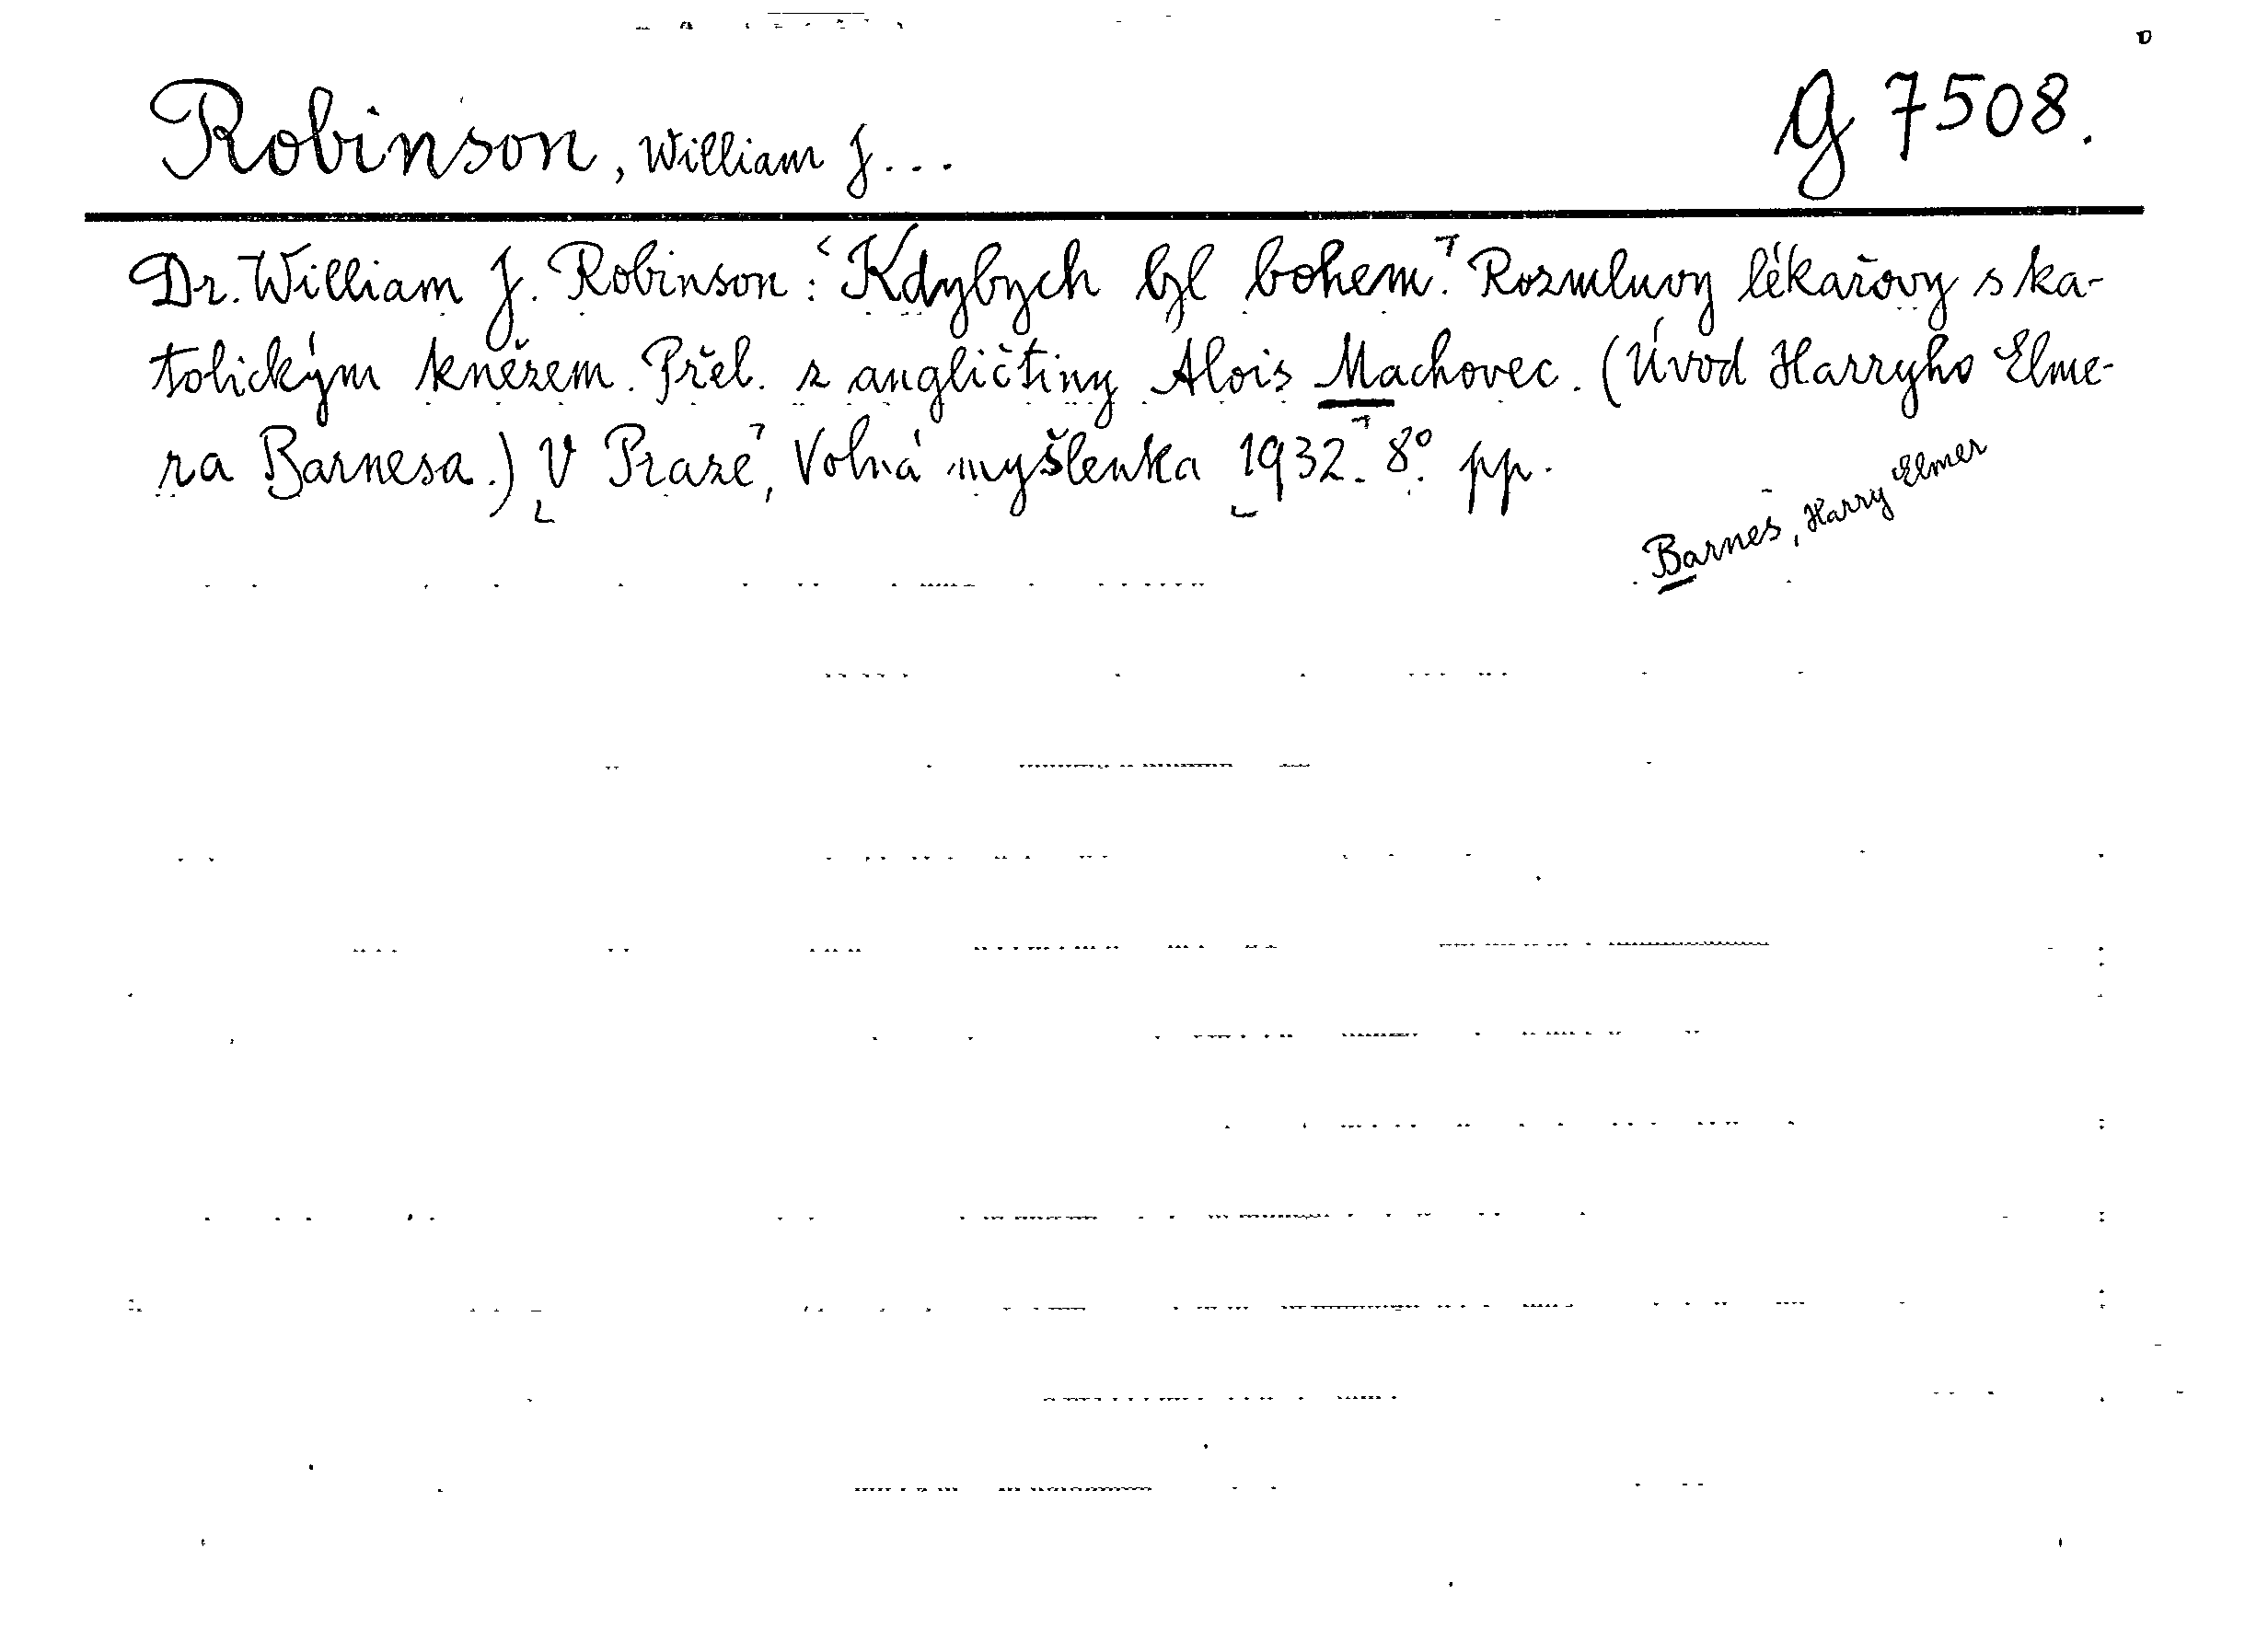 Robinson, William J... G 7508.
Dr. William J. Robinson: Kdybych byl bohem. Rozmluvy lékařovy s ka-
tolickým knězem. Přel. z angličtiny Alois Machovec. (Úvod Harryho Elme-
ra Barnesa.) V Praze, Volná myšlenka 1932. 8°. pp.
Barnes, Harry Elmer